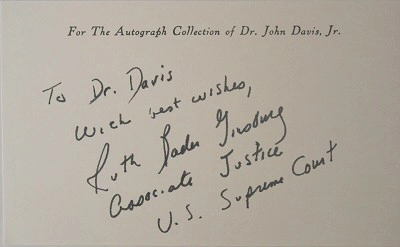 For The Autograph Collection of Dr. John Davis, Jr.
To Dr. Davis
With best wishes,
Ruth Bader Ginsburg
Associate Justice
U.S. Supreme Court